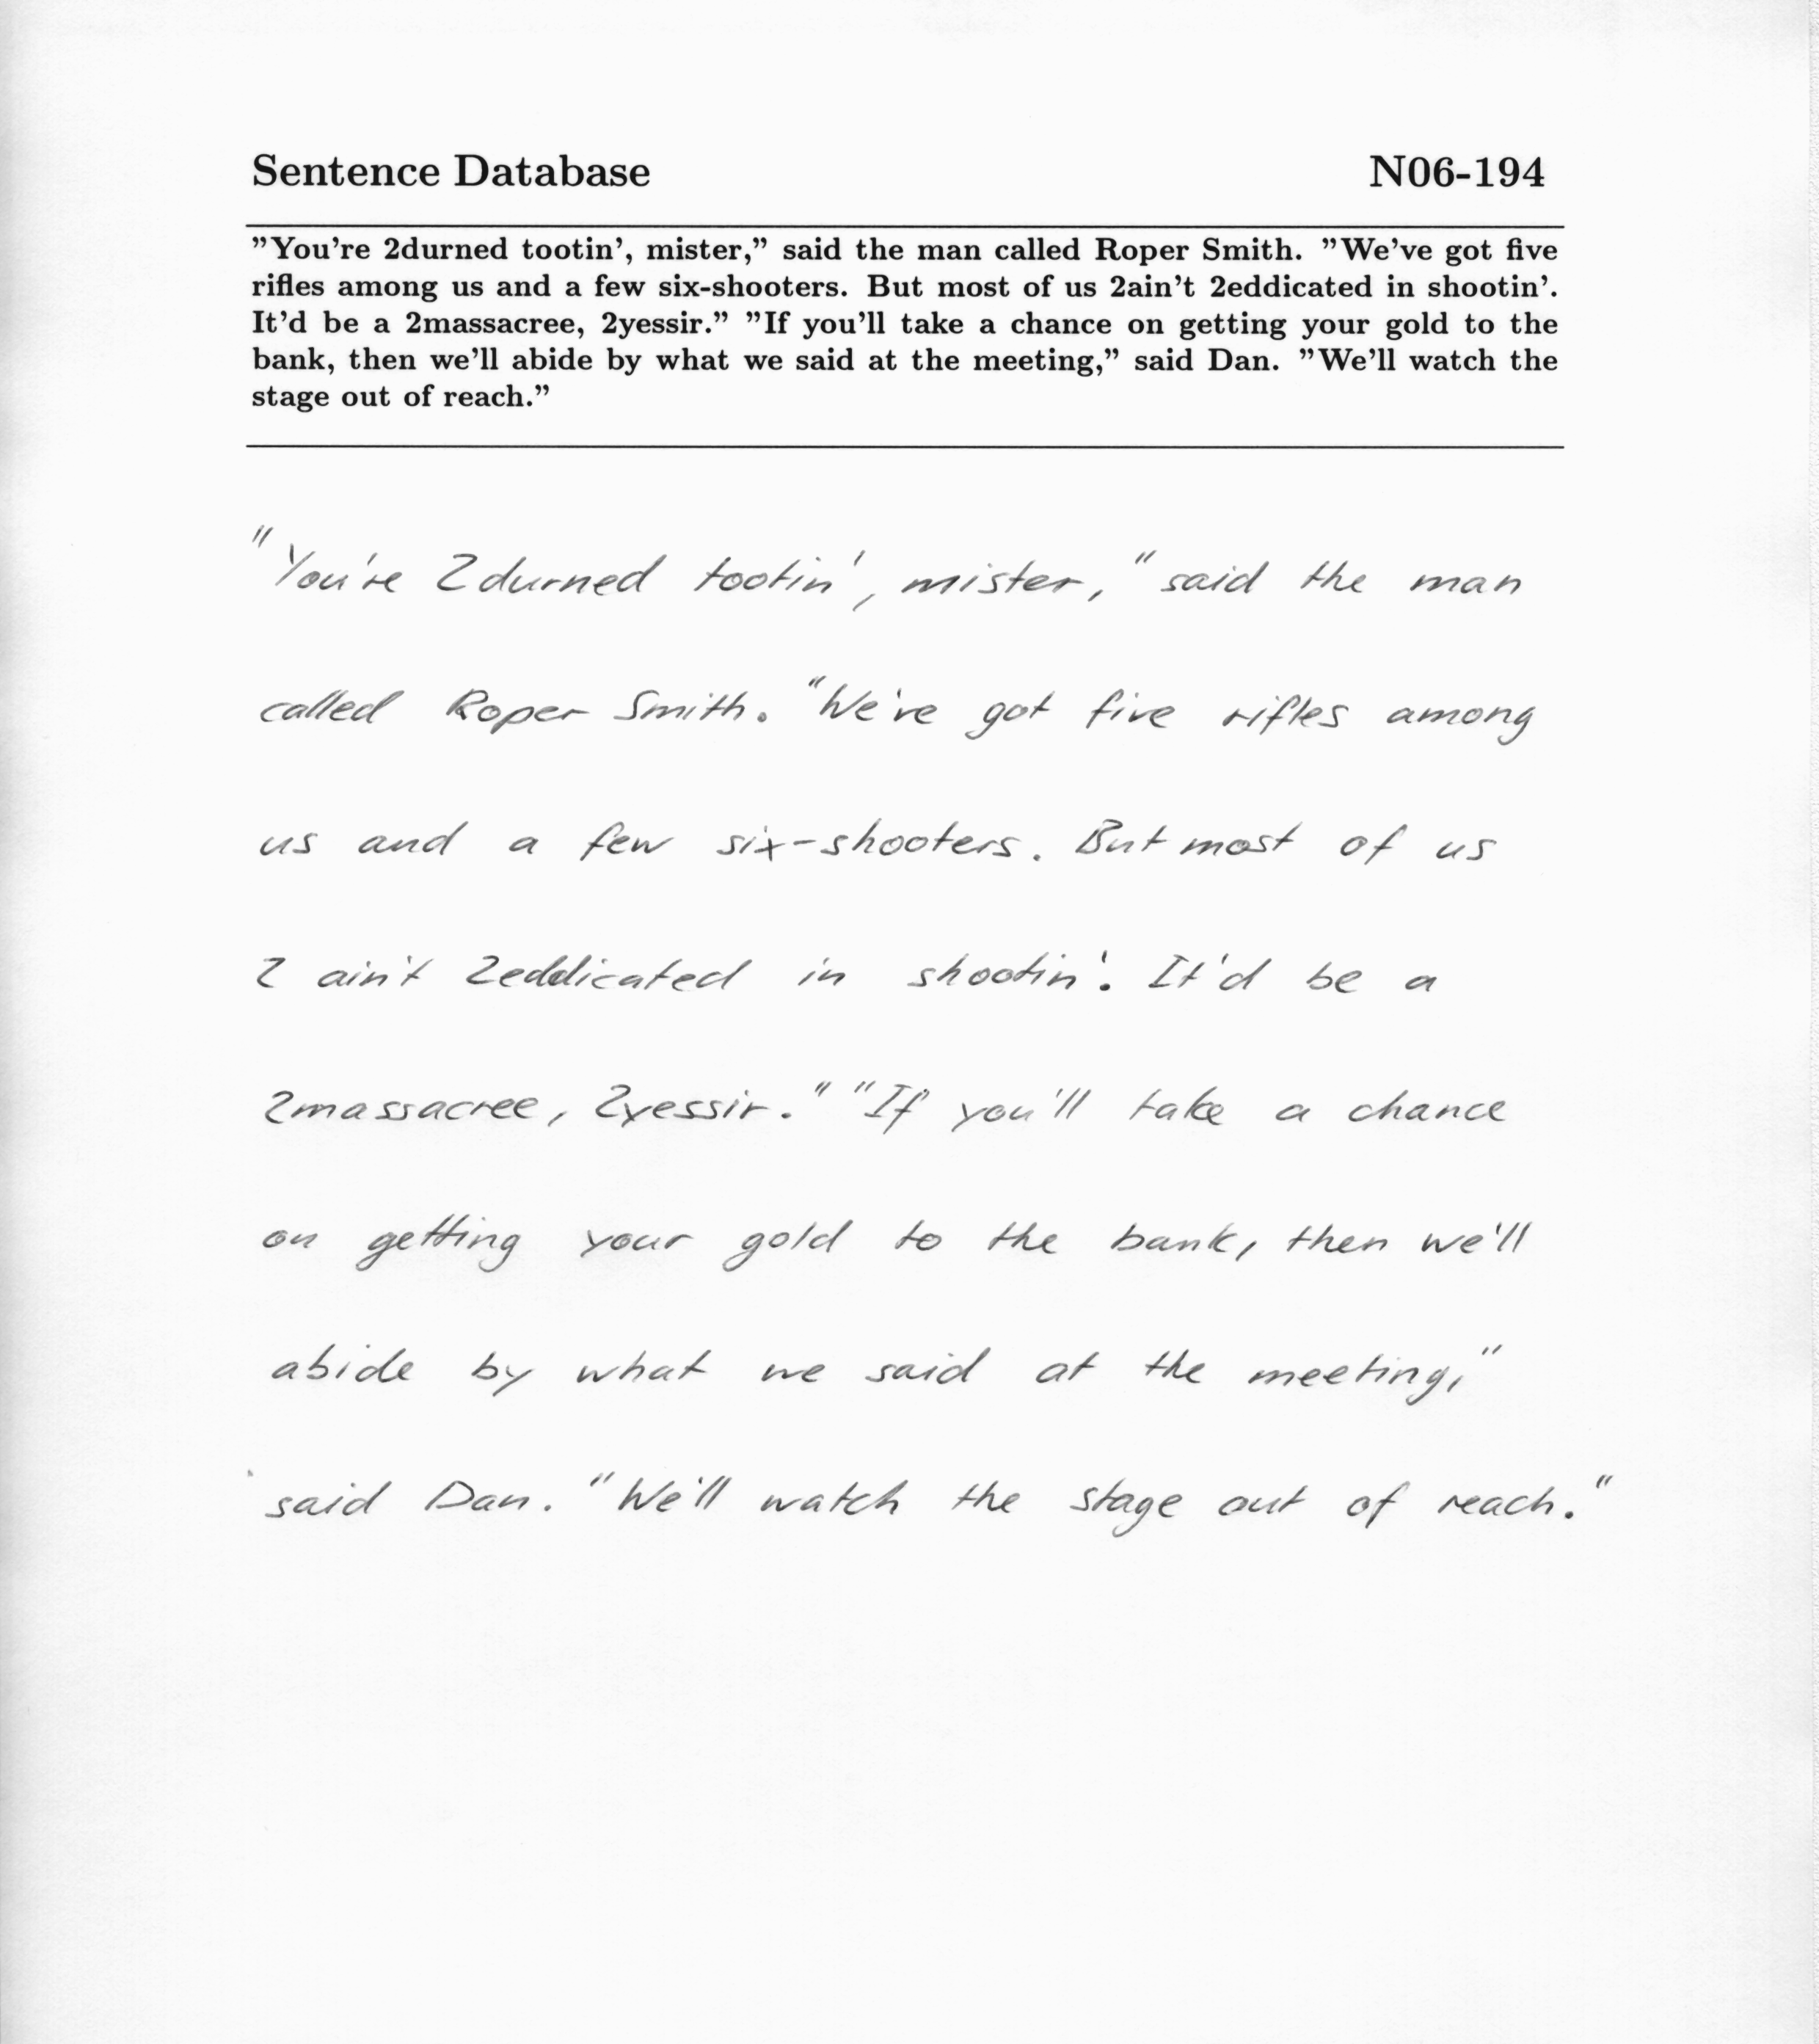 Sentence Database N06-194
"You're 2durned tootin', mister," said the man called Roper Smith. "We've got five
rifles among us and a few six-shooters. But most of us 2ain't 2eddicated in shootin'.
It'd be a 2massacree, 2yessir." "If you'll take a chance on getting your gold to the
bank, then we'll abide by what we said at the meeting," said Dan. "We'll watch the
stage out of reach."
"You're 2durned tootin', mister," said the man
called Roper Smith. "We've got five rifles among
us and a few six-shooters. But most of us
2 ain't 2eddicated in shootin'. It'd be a
2massacree, 2yessir." "If you'll take a chance
on getting your gold to the bank, then we'll
abide by what we said at the meeting,"
said Dan. "We'll watch the stage out of reach."